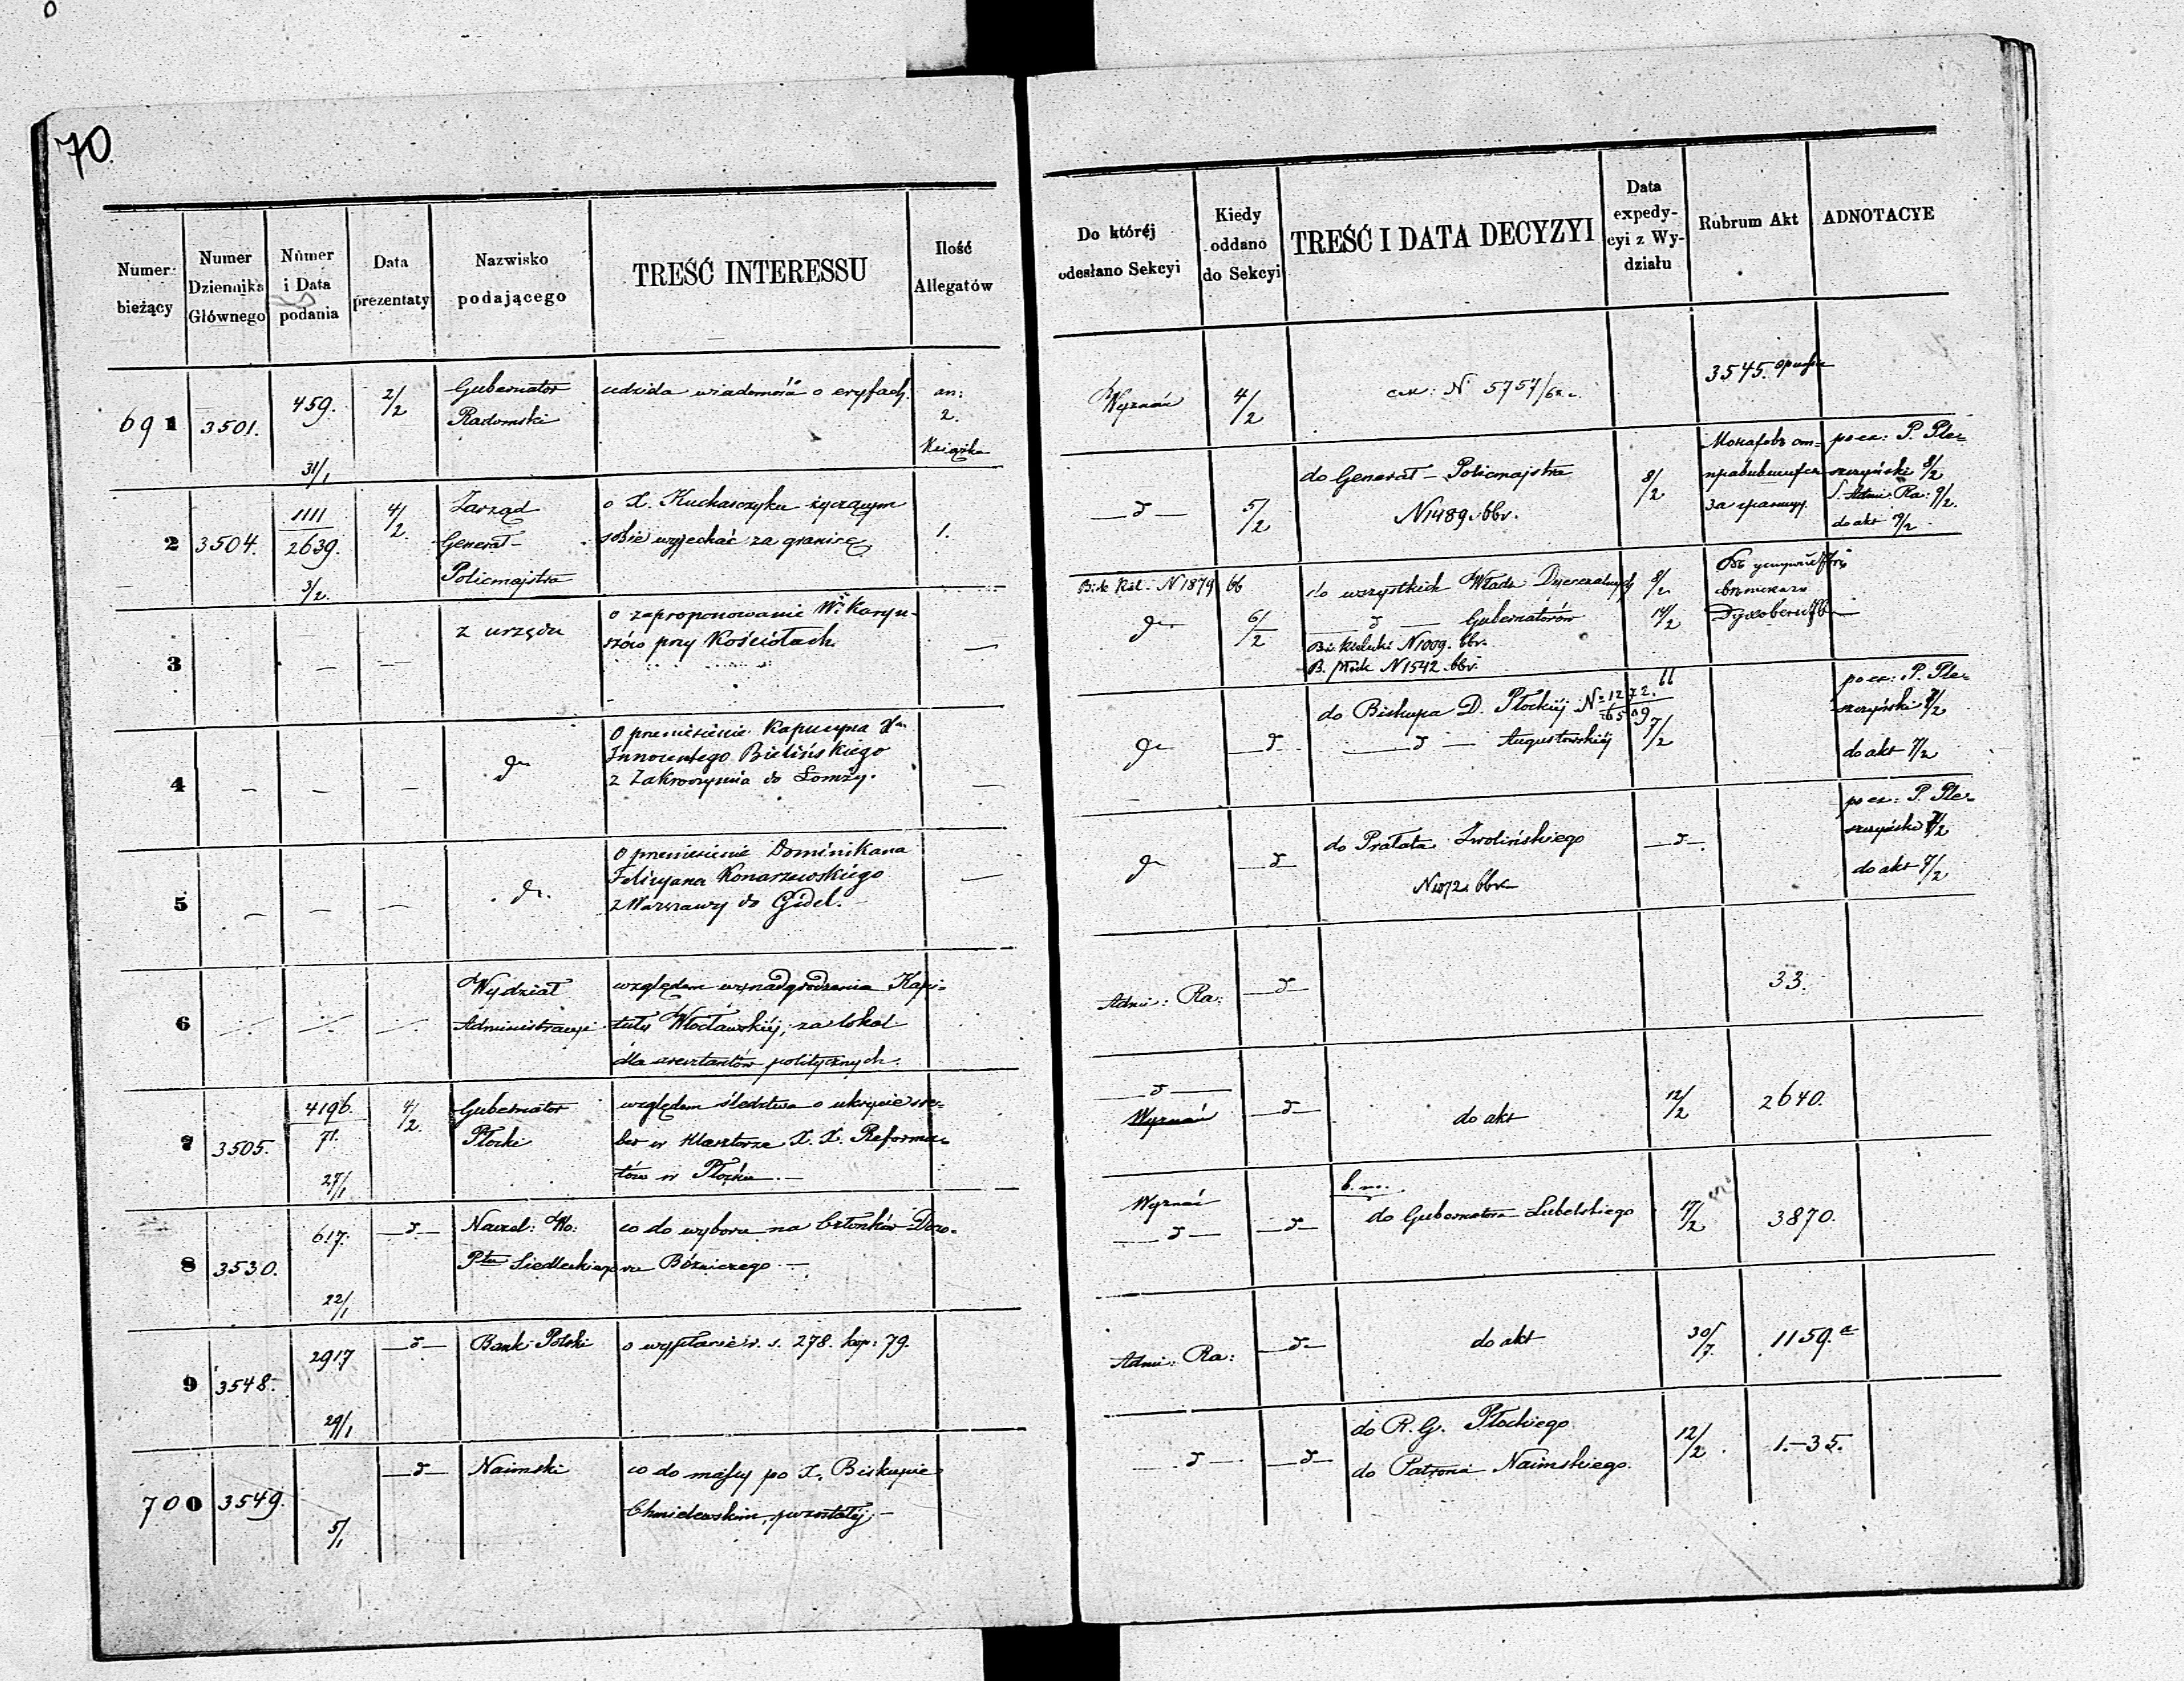 70.
Numer bieżący
Numer Dziennika Głównego
Numer i Data podania
Data prezentaty
Nazwisko podającego
TREŚĆ INTERESSU
Ilość Allegatów
Do któréj odesłano Sekcyi
Kiedy oddano do Sekcyi
TREŚĆ I DATA DECYZYI
Data expedycyi z Wydziału
Rubrum Akt
ADNOTACYE
691
3501.
459.
31/1
2/2
Gubernator
Radomski
udziela wiadomość o
an:
2.
Książka
Wyznań
4/2
N 5757/
3545.
2
3504.
1111
2639.
3/2
4/2
Zarząd
Generał-
Policmajstra
o X. Kucharczyku życzącym
sobie wyjechać za granicę
1.
5/2
do Generał-Policmajstra
N1489.
8/2
за границу
po ex: P. Ple=
szczyński 8/2
Admi: Ra: 9/2.
do akt 9/2
3
z urzędu
o zaproponowanie
przy Kościołach
N1879
6/2
do wszystkich Władz Dyecezalnych
Gubernatorów
N1009.
N1542.
8/2
14/2
4
O przeniesienie Kapucyna Xa.
Innocentego Bielińskiego
z Zakroczymia do Łomży.
do Biskupa D. Płockiéj N: 1272.
Augustowskiéj
7/2
po ex: P. Ple=
szczyński 7/2
do akt 7/2
5
O przeniesienie Dominikana
Felicyana Konarzewskiego
z Warszawy do Gidel.
do Prałata Zwolińskiego
N1072.
po ex: P. Ple=
szczyński 7/2
do akt 7/2
6
Wydział
Administracyi
względem wynadgrodzenia Kapi-
tuły Włocławskiéj, za lokal
dla aresztantów politycznych.
Admi: Ra:
33.
7
3505.
4196.
71.
27/1
4/2.
Gubernator
Płocki
względem śledztwa o ukrycie sre-
ber w Klasztorze X. X. Reforma-
tów w Płocku.—
Wyznań
do akt
12/2
2640.
8
3530.
617.
22/1
Naczel: Wo:
Ptu Siedleckiego
co do wyboru na Członków Dozo-
ru Bóźniczego —
Wyznań
do Gubernatora Lubelskiego
17/2
3870.
9
3548.
2917
29/1
Bank Polski
o wypłacie r. s. 278. kop: 79.
Admi: Ra:
do akt
30/7.
1159.
700
3549.
5/1
Naimski
co do massy po X. Biskupie
Chmielewskim, pozostałéj —
do R. G. Płockiego
do Patrona Naimskiego.
12/2.
1.–35.